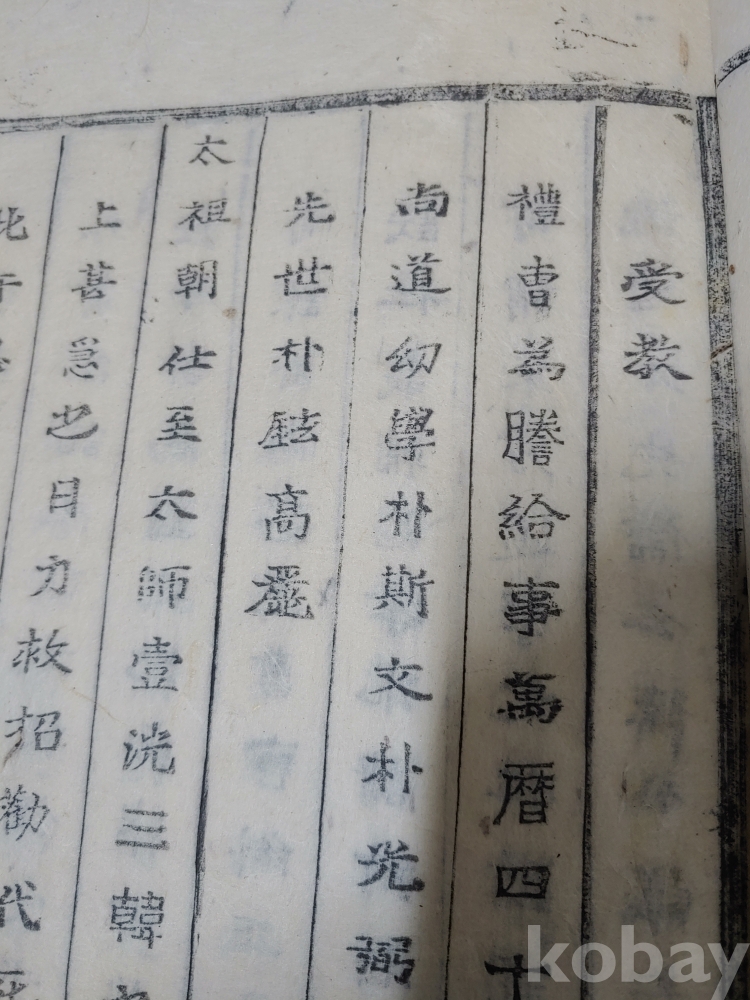 受教
禮曹為謄給事萬曆四十
尚道幼學朴斯文朴光弼
先世朴鉉高麗
太祖朝仕至太師壹洸三韓
上甚
也日力救招勸代
kobay